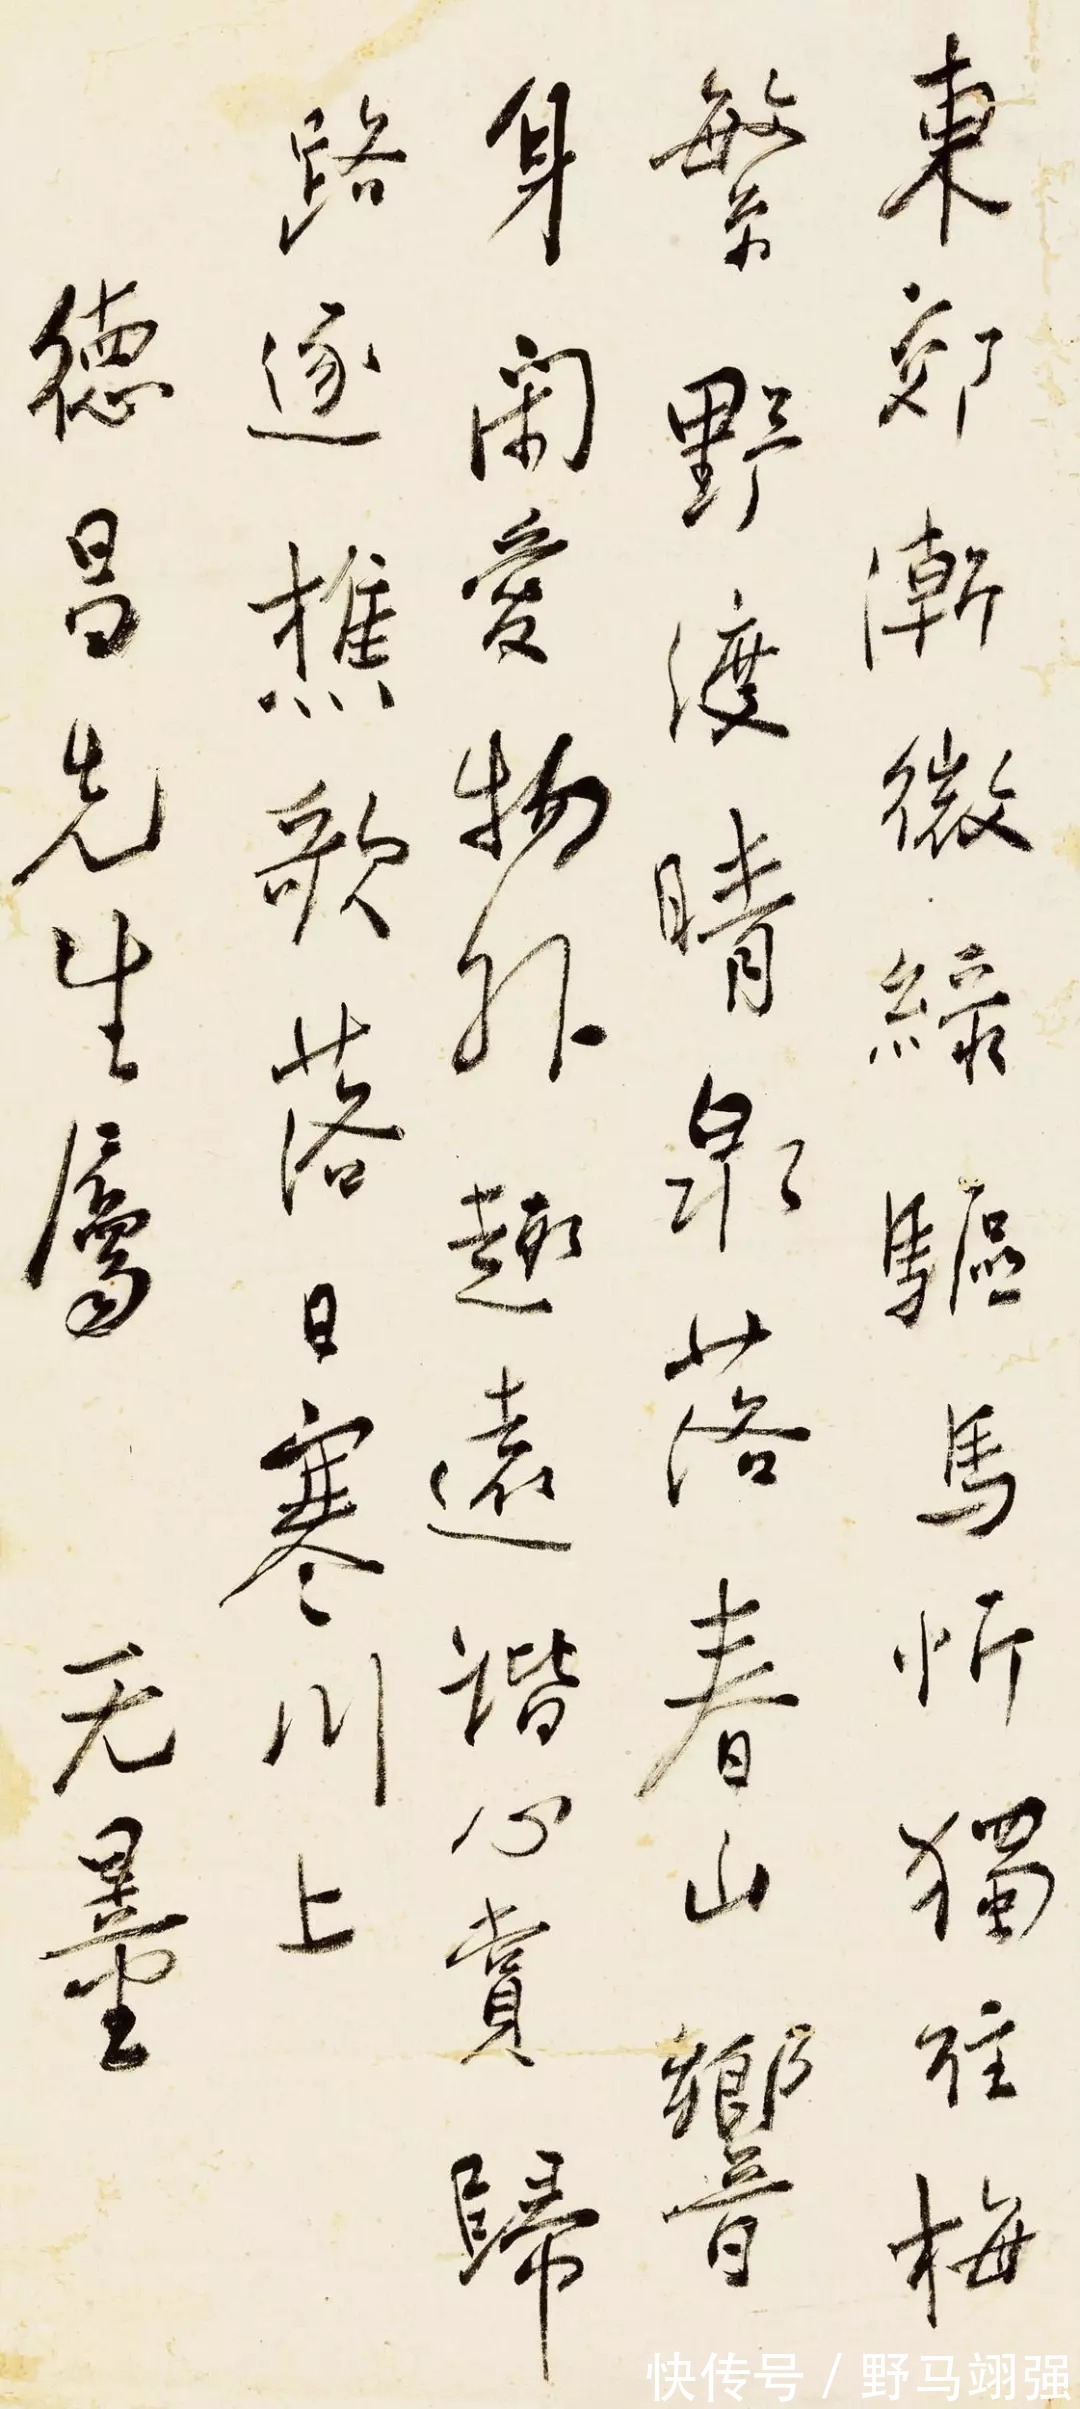 東郊漸微綠驅馬忻獨往梅
繁野渡晴泉落春山響
身閑愛物外趣遠諧心賞歸
路逐樵歌落日寒川上
德昌先生屬
无量
快传号 / 野马翊强